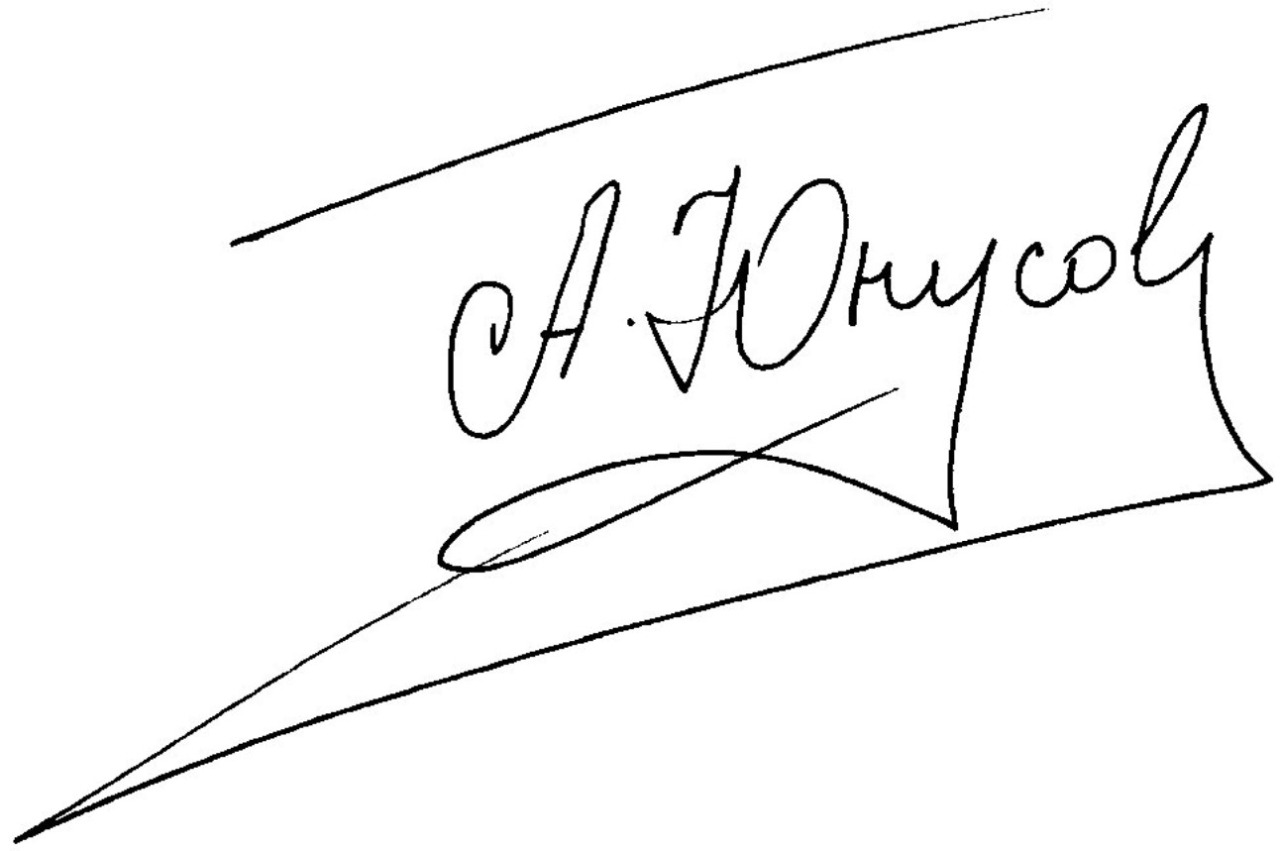 А. Юнусов